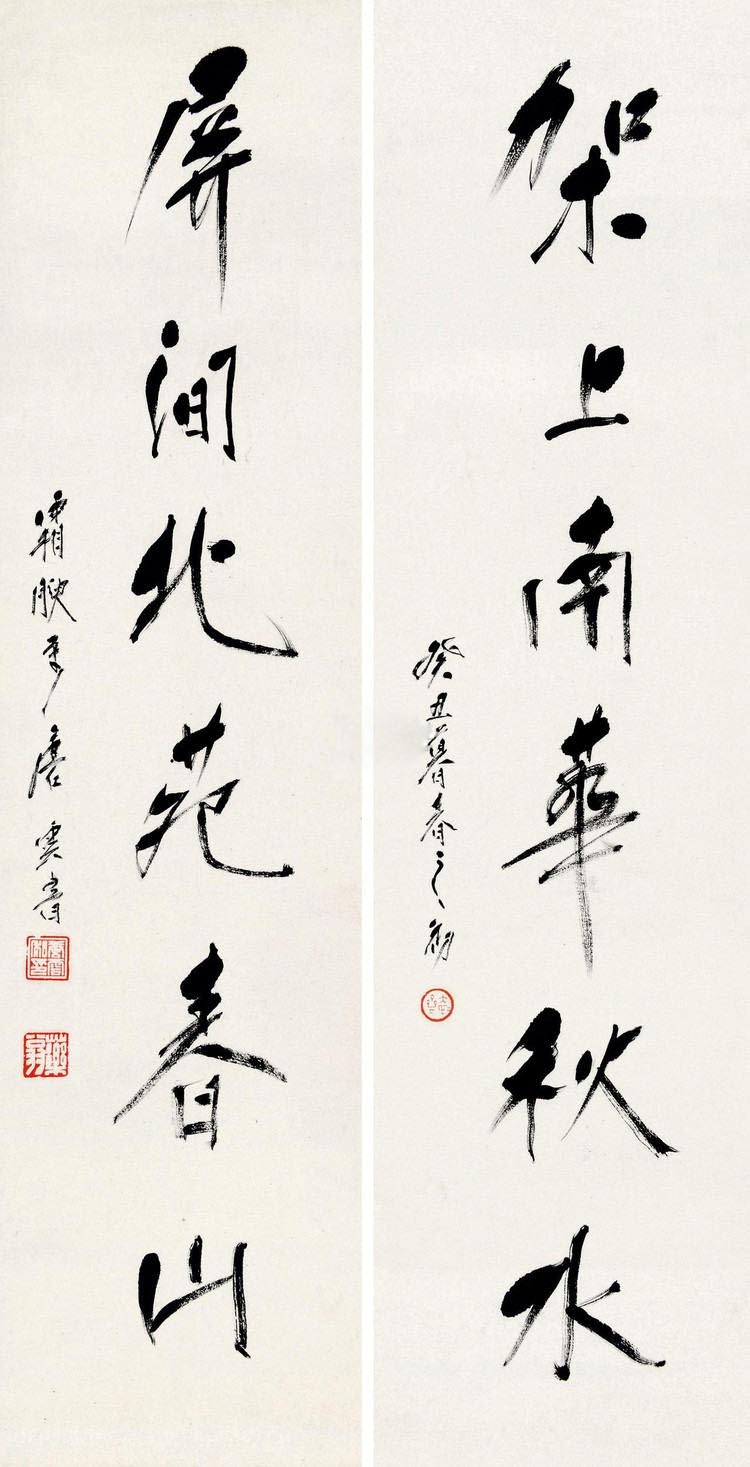 架上南華秋水
癸丑暮春之初
屏間北苑春山
霜腴 唐雲書
藥翁